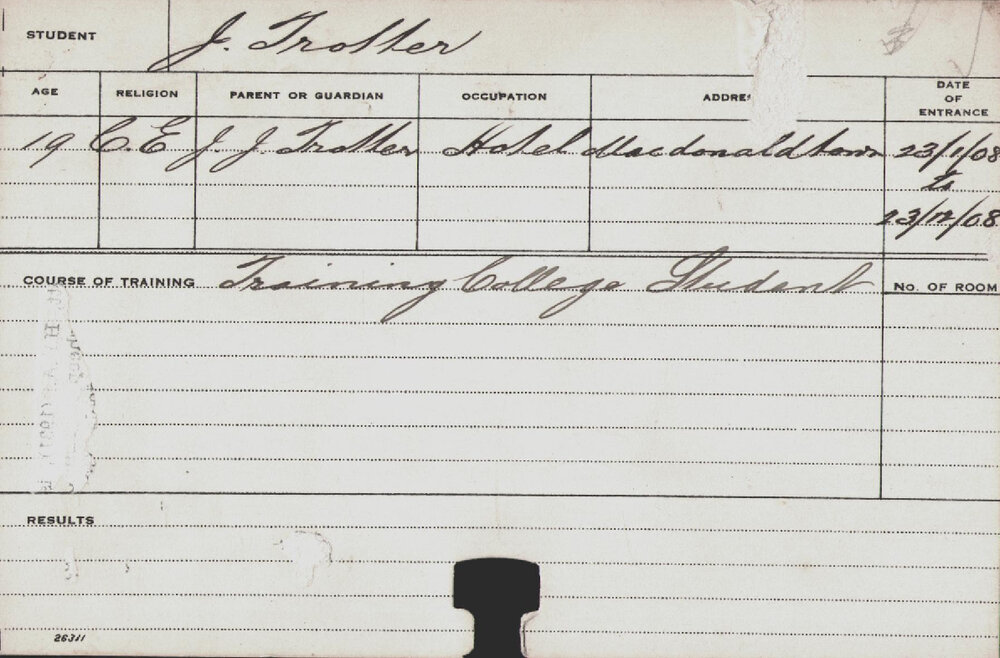 STUDENT J. Trotter
AGE RELIGION PARENT OR GUARDIAN OCCUPATION ADDRE DATE OF ENTRANCE
19 C.E J. J. Trotter Hotel Macdonaldtown 23/1/08
to
23/12/08
COURSE OF TRAINING Training College Student No. OF ROOM
RESULTS
26311